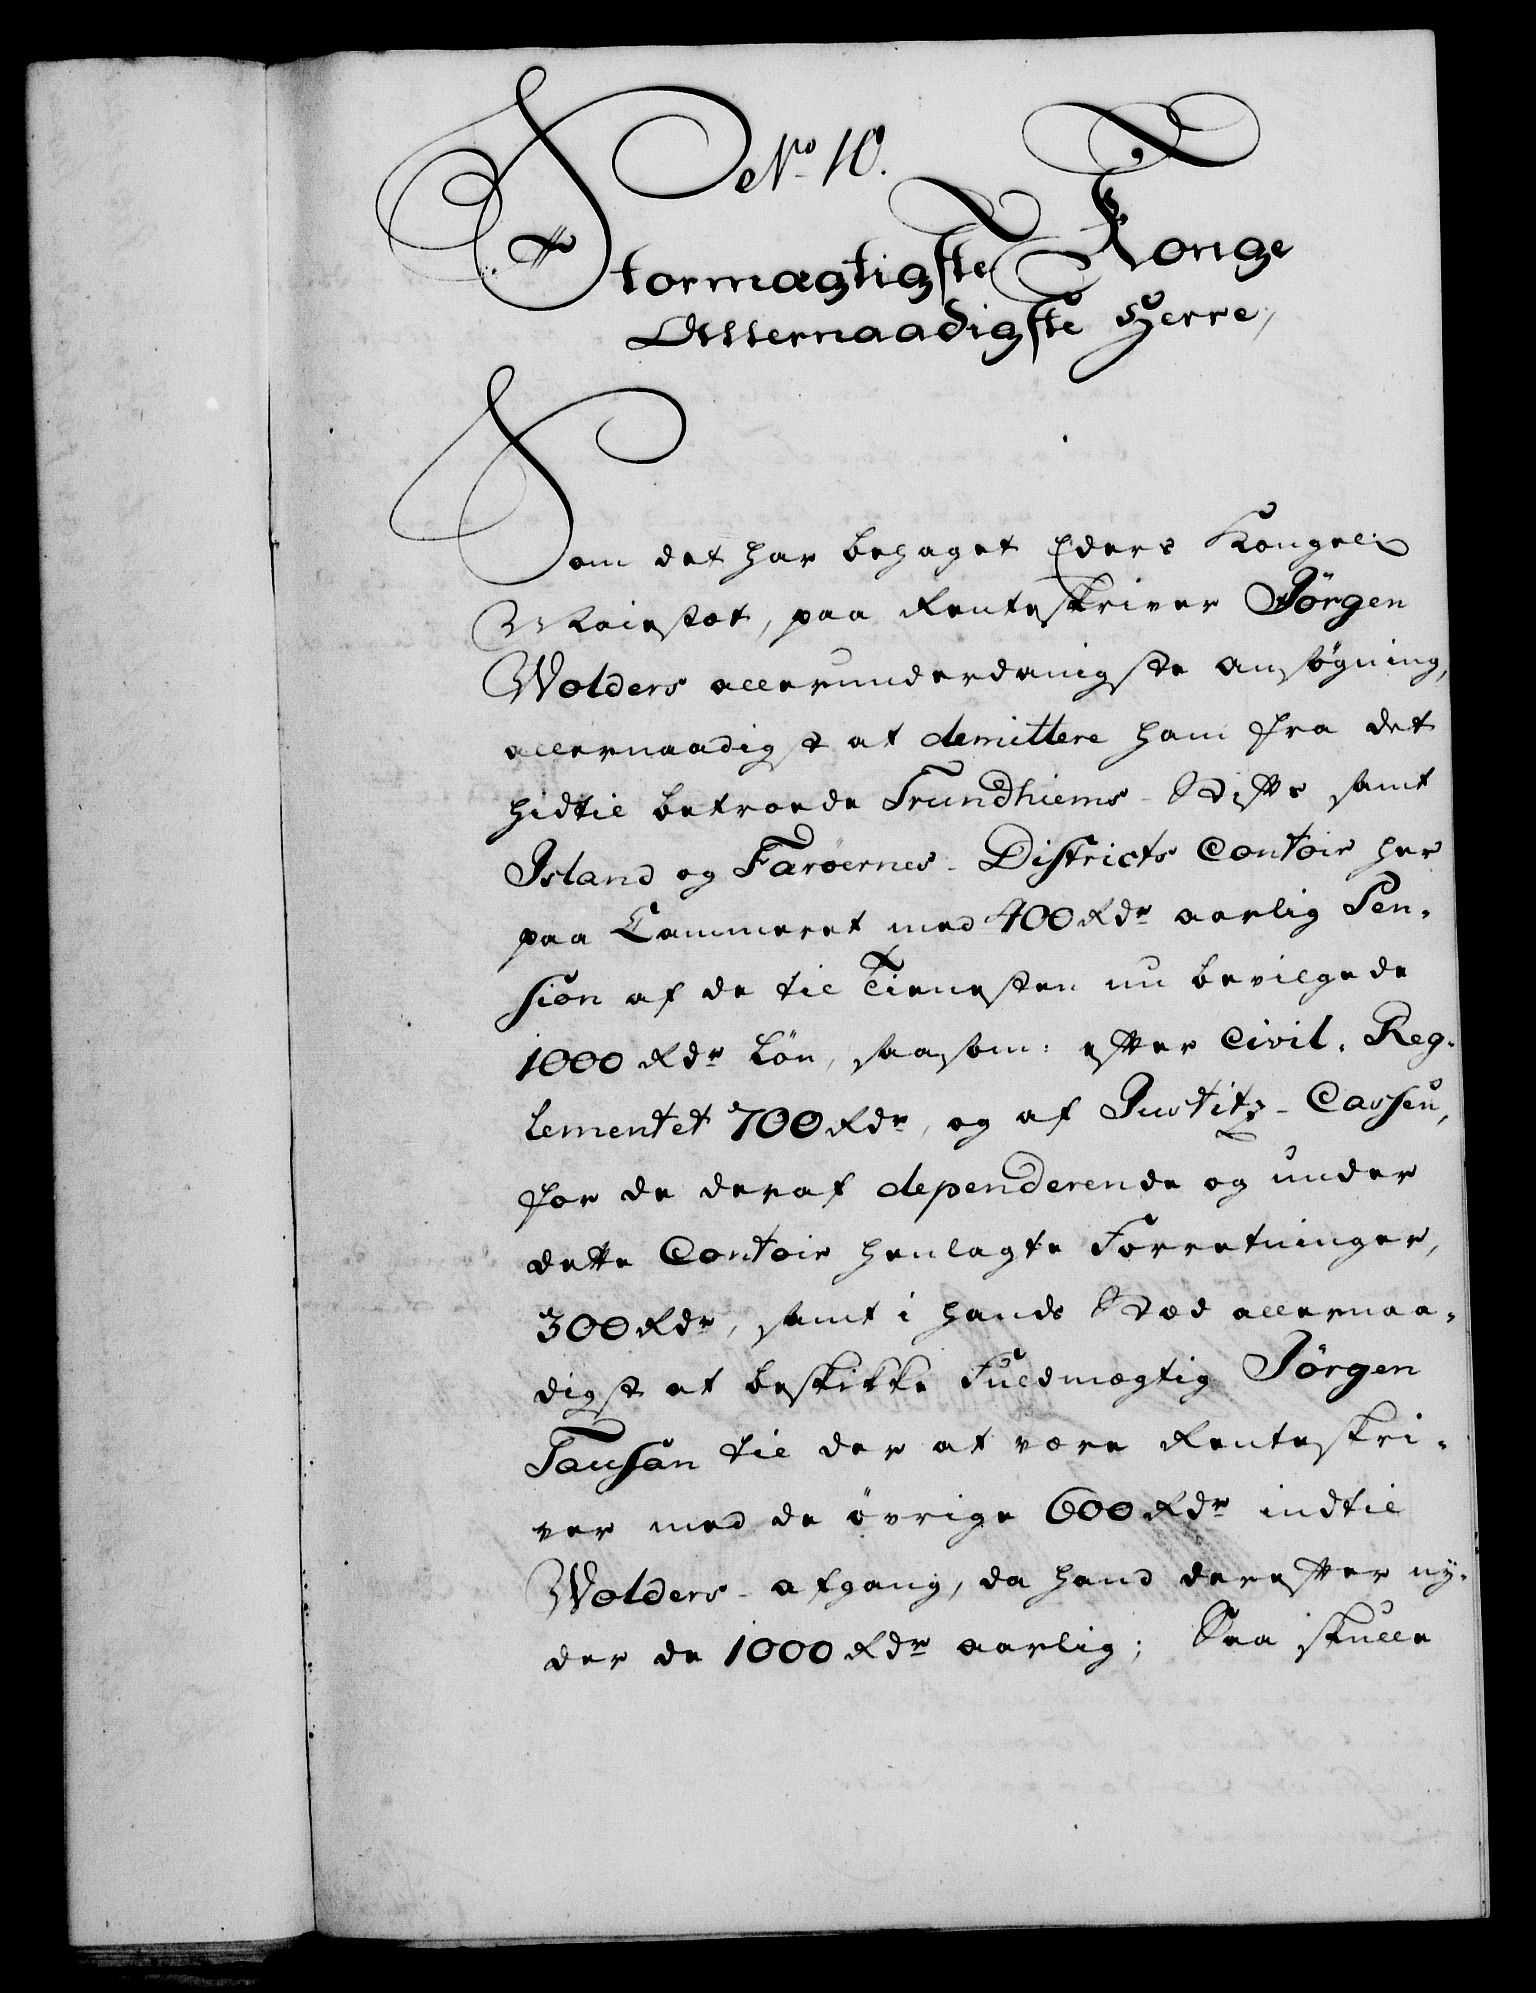 No 10.
Stormægtigste Konge
Allernaadigste Herre,
Som det har behaget Eders Kongel:
Maiestæt, paa Renteskriver Jörgen
Wolders allerunderdanigste ansögning,
allernaadigst at demittere ham fra det
hidtil betroede Trundhiems-Stifts samt
Island og Faröernes-Districts Contoir her
paa Cammeret med 400 Rdr aarlig Pen-
sion af de til Tienesten nu bevilgede
1000 Rdr Lön, saasom: efter Civil-Reg-
lementet 700 Rdr, og af Justitz-Cassen,
for de deraf dependerende og under
dette Contoir henlagte Forretninger,
300 Rdr, samt i hands Stæd allernaa-
digst at beskikke Fuldmægtig Jörgen
Tausan til der at være Renteskri-
ver med de övrige 600 Rdr indtil
Wolders-afgang, da hand derefter ny-
der de 1000 Rdr aarlig; Saa skulle